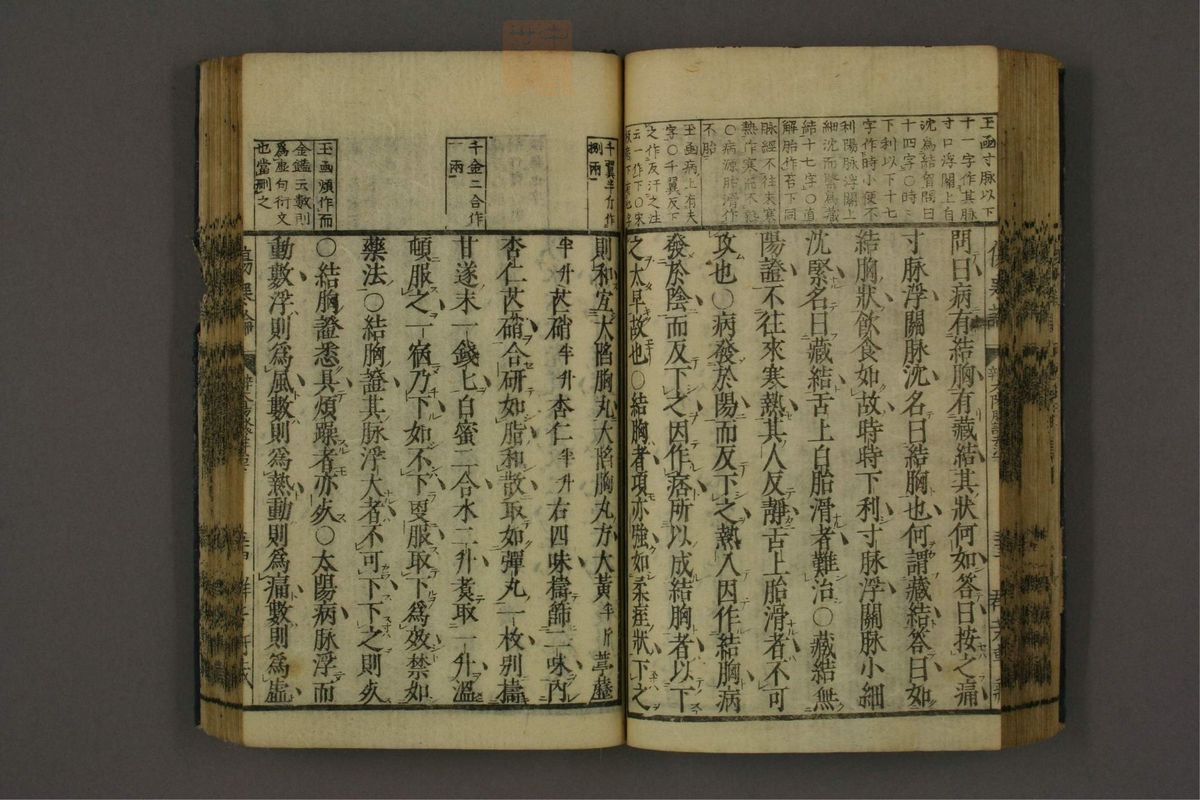 王函寸脉以下
十一字作其脉
寸口浮關上自
沈爲結胸問曰
十四字〇時時
下利以下十七
字作時小便不
利陽脉浮關上
細沈而緊爲藏
結十七字〇道
解胎作苔下同
脉經不往來寒
熱作寒而不熱
〇病源胎滑作
不胎
玉函病上有夫
字〇千翼反下
之作反汗之注
云一作下〇宋
問曰病有結胸有藏結其狀何如答曰按之痛
寸脉浮關脉沈名曰結胸也何謂藏結答曰如
結胸狀飲食如故時時下利寸脉浮關脉小細
沈緊名曰藏結舌上白胎滑者難治〇藏結無
陽證不往來寒熱其人反靜舌上胎滑者不可
攻也〇病發於陽而反下之熱入因作結胸病
發於陰而反下之因作痞所以成結胸者以下
之太早故也〇結胸者項亦強如柔痓狀下之
千翼半斤作
捌兩
千金二合作
一兩
玉函煩作而
金鑑云數則
爲虛句衍文
也當刪之
則和宜大陷胸丸大陷胸丸方大黃半斤葶藶
半升芒硝半升杏仁半升右四味擣篩二味內
杏仁芒硝合研如脂和散取如彈丸一枚別擣
甘遂末一錢匕白蜜二合水二升煑取一升溫
頓服之一宿乃下如不下更服取下爲效禁如
藥法〇結胸證其脉浮大者不可下下之則死
〇結胸證悉具煩躁者亦死〇太陽病脉浮而
動數浮則爲風數則爲熱動則爲痛數則爲虛
傷寒論